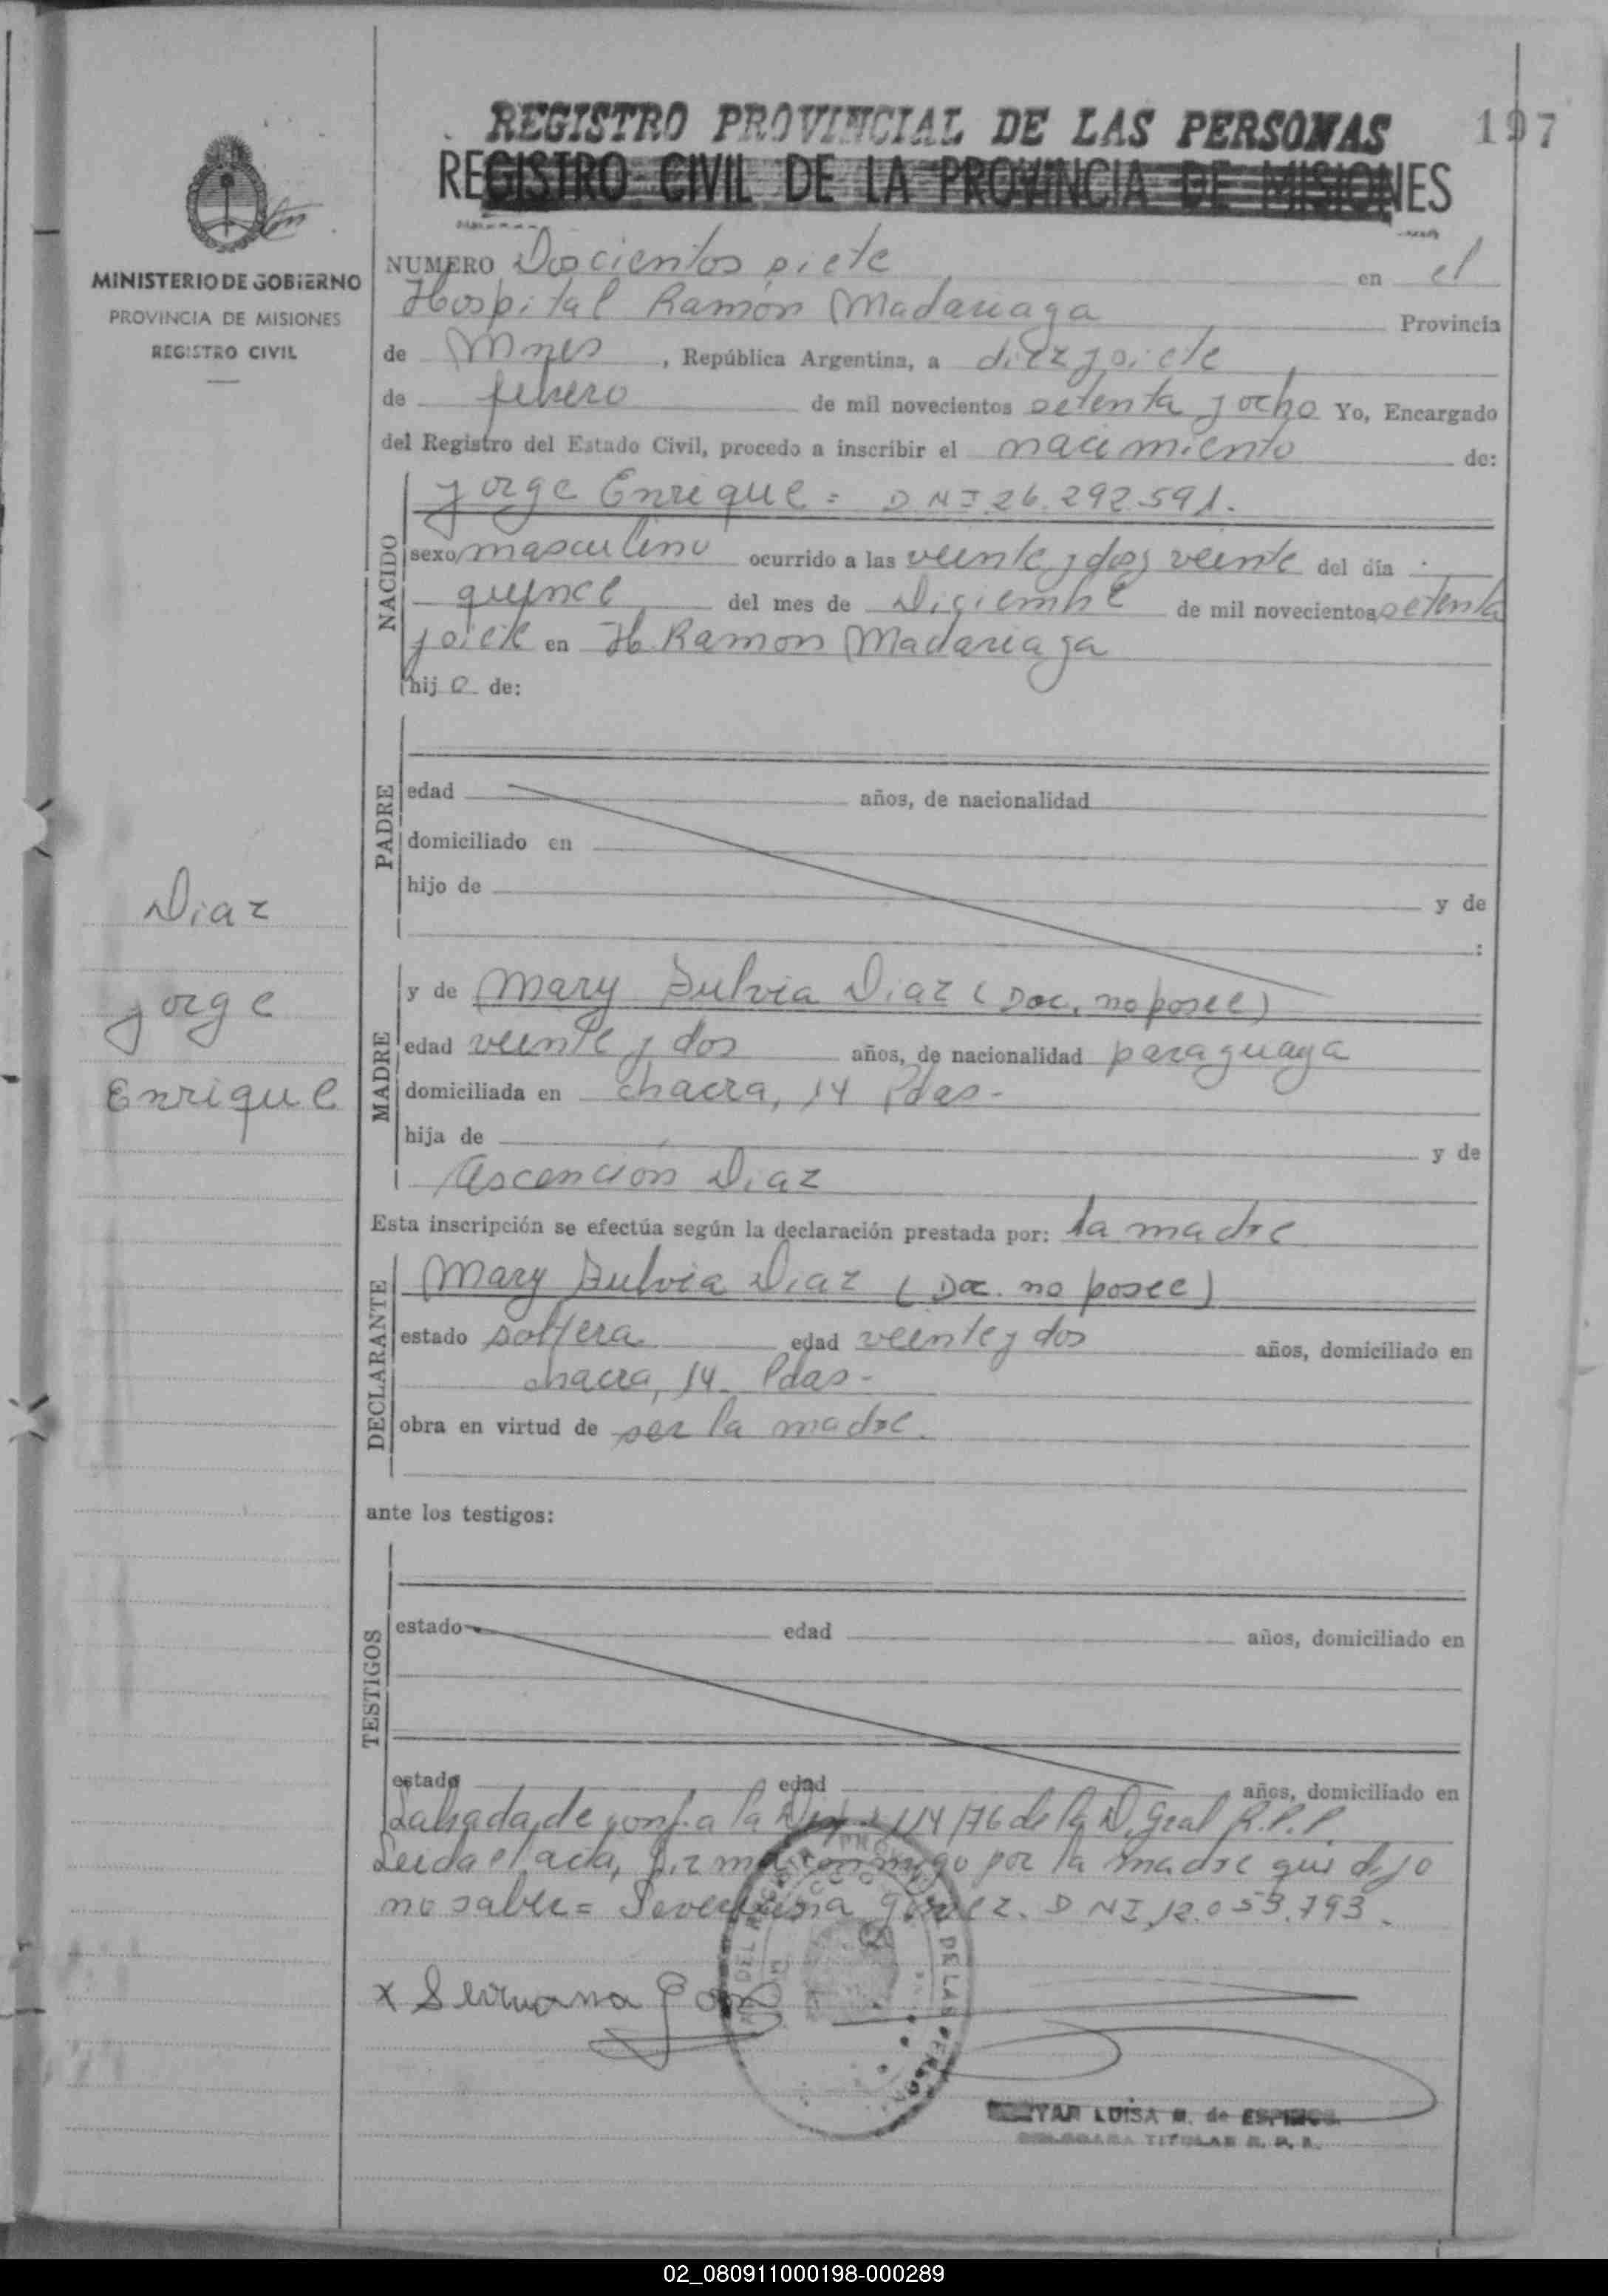 REGISTRO PROVINCIAL DE LAS PERSONAS
197
REGISTRO CIVIL DE LA PROVINCIA DE MISIONES
MINISTERIO DE GOBIERNO
PROVINCIA DE MISIONES
REGISTRO CIVIL
NUMERO Doscientos siete en el
Hospital Ramón Madariaga Provincia
de Mnes, República Argentina, a diez y siete
de febrero de mil novecientos setenta y ocho Yo, Encargado
del Registro del Estado Civil, procedo a inscribir el nacimiento de:
NACIDO
Jorge Enrique = DNI 26.292.591.
sexo masculino ocurrido a las veinte y dos y veinte del día
quince del mes de Diciembre de mil novecientos setenta
y siete en H. Ramon Madariaga
hijo de:
PADRE
edad años, de nacionalidad
domiciliado en
hijo de y de
:
Diaz
Jorge
Enrique
MADRE
y de Mary Fulvia Diaz (Doc. no posee)
edad veinte y dos años, de nacionalidad paraguaya
domiciliada en chacra, 14 Pdas-
hija de y de
Ascención Diaz
Esta inscripción se efectúa según la declaración prestada por: la madre
DECLARANTE
Mary Fulvia Diaz (Doc. no posee)
estado soltera edad veinte y dos años, domiciliado en
chacra, 14 Pdas-
obra en virtud de ser la madre.
ante los testigos:
TESTIGOS
estado edad años, domiciliado en
estado edad años, domiciliado en
Labrada de conf. a la 114/76 de la D. Gral R.P.P.
Leida el acta, firma conmigo por la madre que dijo
no saber = DNI 12.053.793.
x
LUISA M. de
TITULAR R. P. P.
02_080911000198-000289